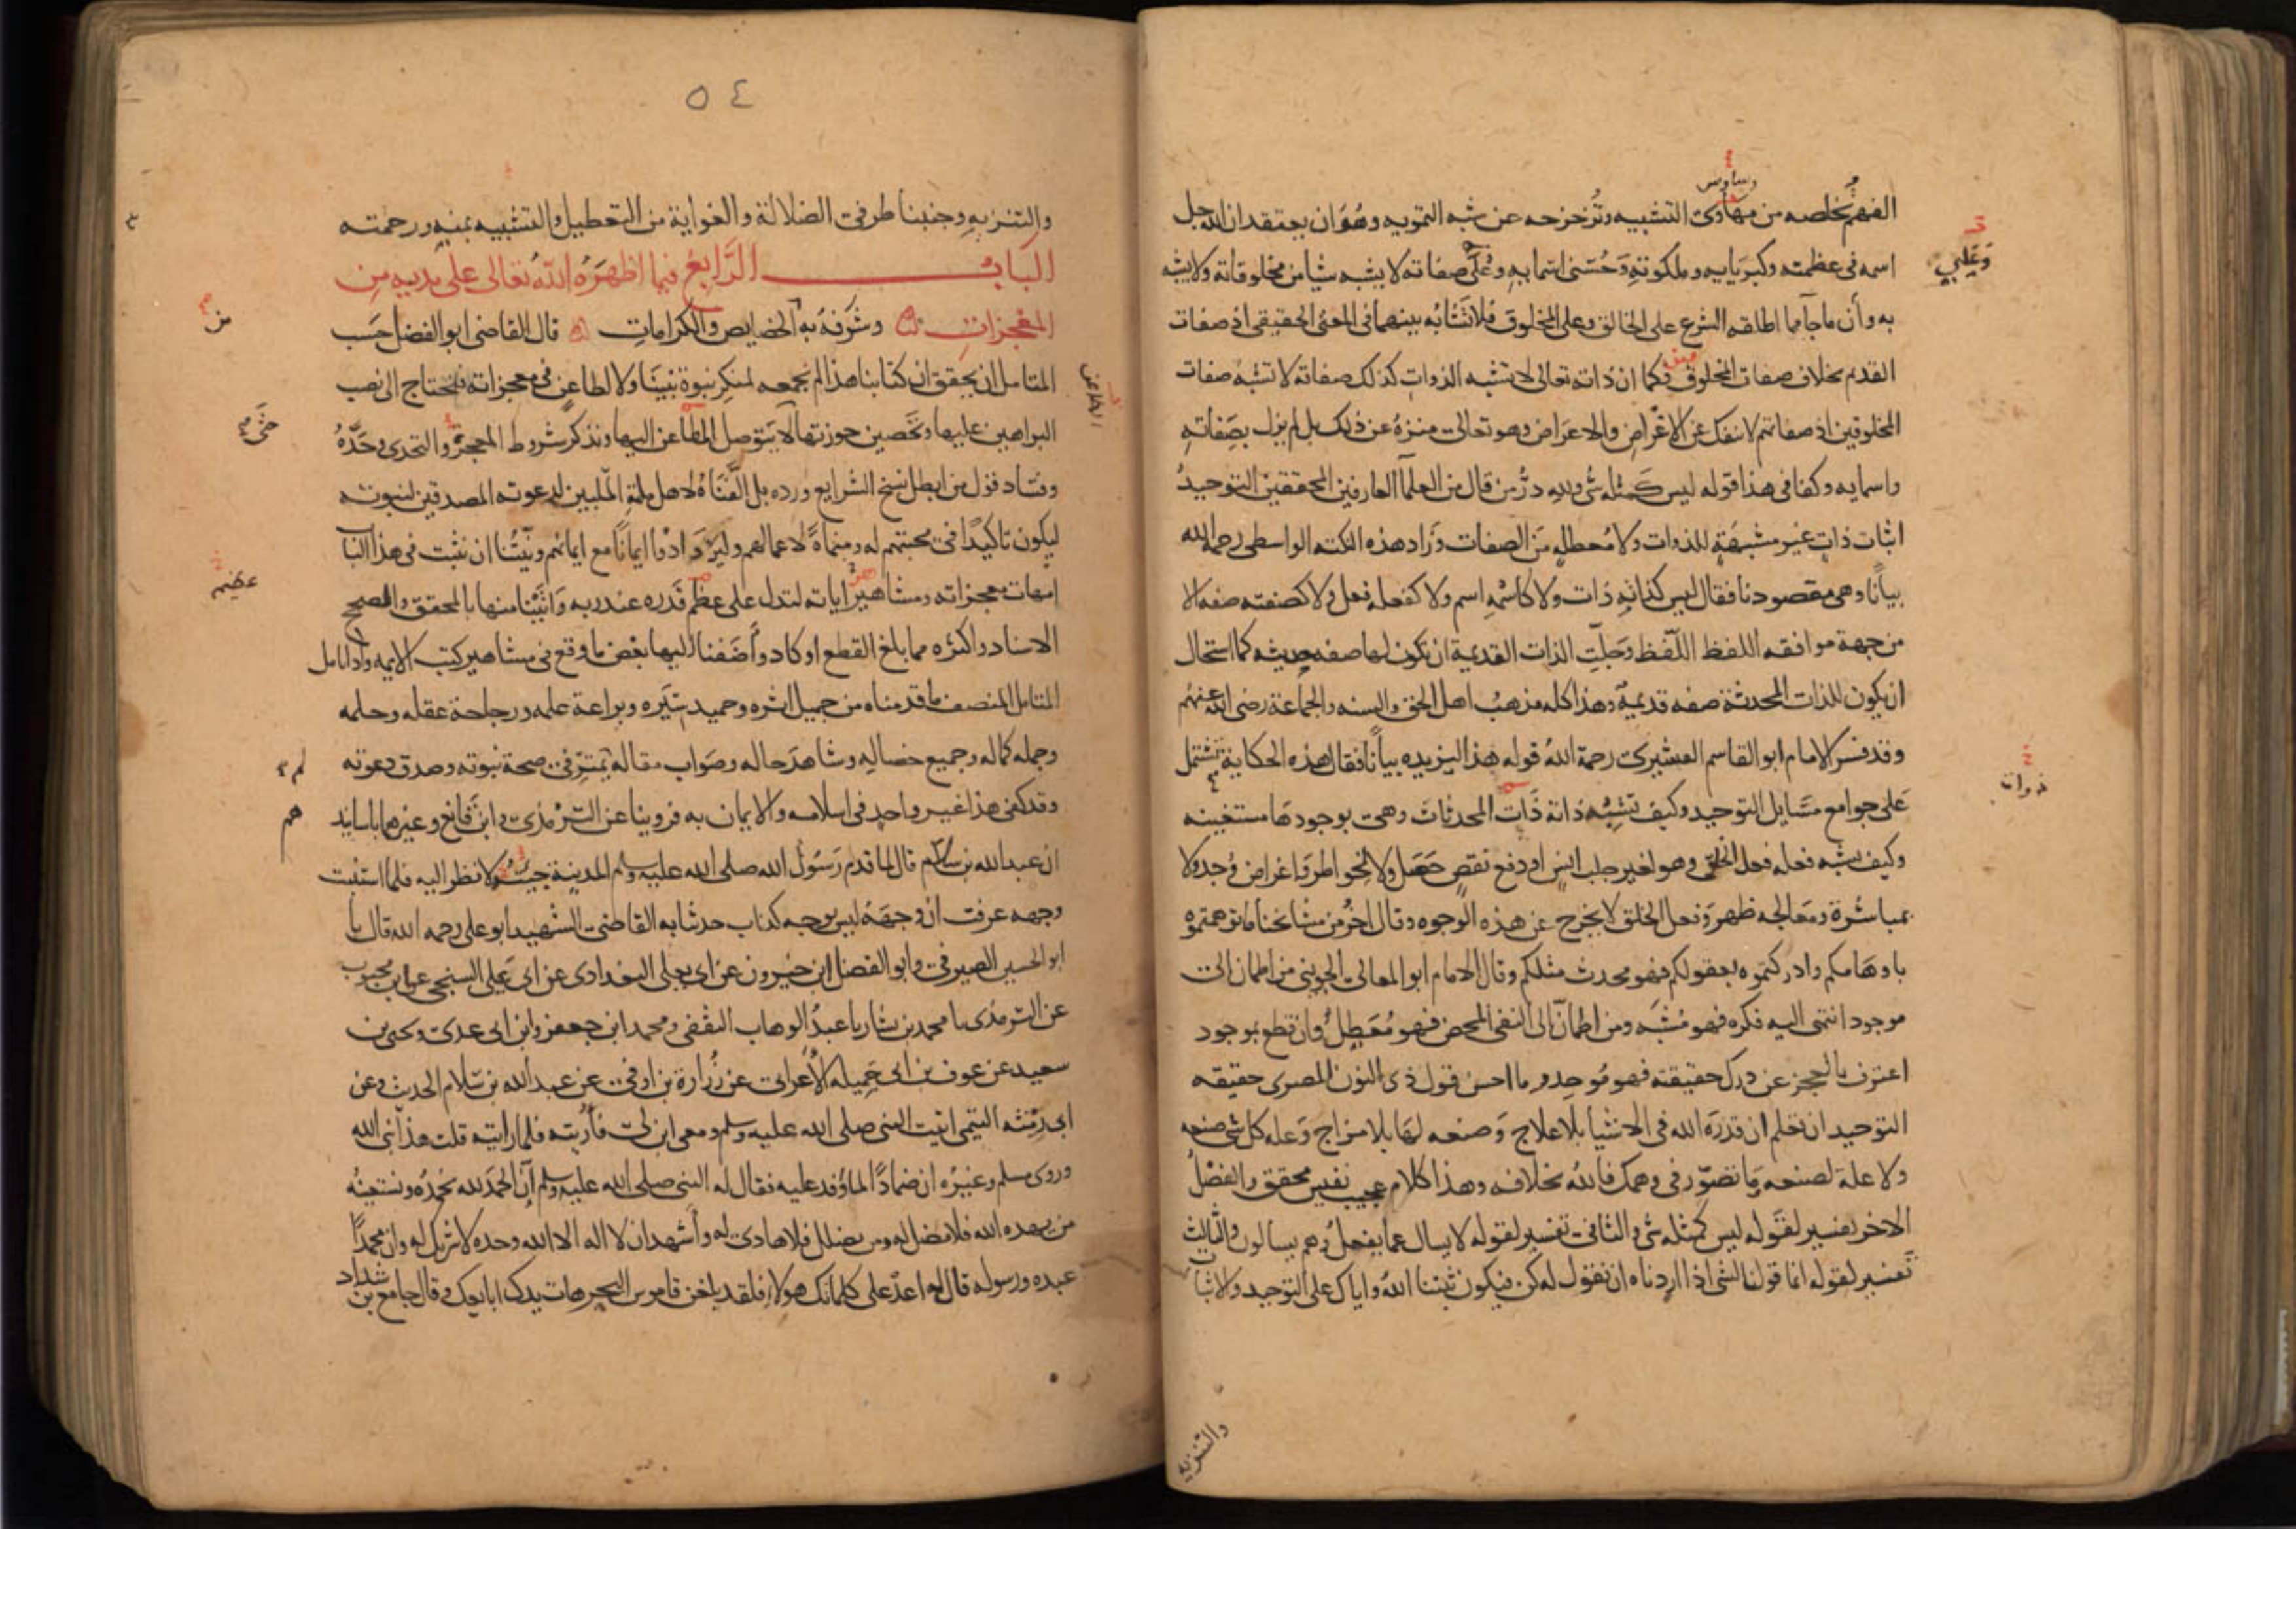 وساوس
الفهم تخلصه من مهاوى التشبيه وتزحزحه عن شبه التمويه وهو ان يعتقد ان الله جل
وعلي
اسمه فى عظمته وكبريايه وملكوته وحسنى اسمايه وعلى صفاته لا يشبه شيا من مخلوقاته ولا يشبه
به وأن ماجآ مما اطلقه الشرع على الخالق وعلى المخلوق فلا تشابه بينهما فى المعنى الحقيقى اذ صفات
القديم بخلاف صفات المخلوق فكما ان ذاته تعالى لا تشبه الذوات كذلك صفاته لا تشبه صفات
المخلوقين اذ صفاتهم لا تنفك عن الاغراض والاعراض وهو تعالى منزه عن ذلك بل لم يزل بصفاته
واسمايه وكفا فى هذا قوله ليس كمثله شى ولله در من قال من العلمآ العارفين المحققين التوحيد
اثبات ذات غير مشبهة للذوات ولا معطلة من الصفات وزاد هذه النكته الواسطى رحمه الله
بيانا وهى مقصودنا فقال ليس كذاته ذات ولا كاسمه اسم ولا كفعله فعل ولا كصفته صفه الا
من جهة موافقه اللفظ اللفظ وجلت الذات القديمة ان تكون لها صفه حديثه كما استحال
ان يكون للذات المحدثة صفه قديمة وهذا كله مذهب اهل الحق والسنه والجماعة رضى الله عنهم
وقد فسر الامام ابو القاسم القشيرى رحمة الله قوله هذا ليزيده بيانا فقال هذه الحكاية تشتمل
ذوات
على جوامع مسايل التوحيد وكيف تشبه ذاته ذات المحدثات وهى بوجودها مستغنيه
وكيف يشبه فعله فعل الخلق وهو لغير جلب انس او دفع نقص حصل ولا لخواطر واغراض وجد ولا
بمباشرة ومعالجه ظهر وفعل الخلق لا يخرج عن هذه الوجوه وقال اخر من مشايخنا ما توهمتموه
باوهامكم وادركتموه بعقولكم فهو محدث مثلكم وقال الامام ابو المعالى الجوينى من اطمان الى
موجود انتهى اليه فكره فهو مشبه ومن اطمآن الى النفى المحض فهو معطل وان قطع بموجود
اعترف بالعجز عن درك حقيقته فهو موحد وما احسن قول ذى النون المصرى حقيقه
التوحيد ان تعلم ان قدرة الله فى الاشيا بلا علاج وصنعه لها بلا مزاج وعلة كل شى صنعه
ولا علة لصنعه وما تصور فى وهمك فالله بخلافه وهذا كلام عجيب نفيس محقق والفصل
الاخر تفسير لقوله ليس كمثله شى والثانى تفسير لقوله لا يسال عما يفعل وهم يسالون والثالث
تفسير لقوله انما قولنا لشى اذا اردناه ان نقول له كن فيكون ثبتنا الله واياك على التوحيد والاثبات
والتنزيه
٥٤
والتنزيه وجنبنا طرفى الضلالة والغواية من التعطيل والتشبيه بمنه ورحمته
الباب الرابع فيما اظهره الله تعالى على يديه من
المعجزات وشرفه به الخصايص والكرامات قال القاضى ابو الفضل حسب
من
المتامل ان يحقق ان كتابنا هذا لم نجمعه لمنكر نبوة نبينا ولا لطاعن فى معجزاته فنحتاج الى نصب
البراهين عليها وتحصين حوزتها لا يتوصل المطاعن اليها ونذكر شروط المعجزة والتحدى وحده
حتى
وفساد قول من ابطل نسخ الشرايع ورده بل الفناه لاهل ملته الملبين لدعوته المصدقين لنبوته
ليكون تاكيدا فى محبتهم له ومنماة لاعمالهم وليزدادوا ايمانا مع ايمانهم ونيتنا ان نثبت فى هذا الباب
امهات معجزاته ومشاهير اياته لتدل على عظم قدره عند ربه واتينا منها بالمحقق والصحيح
عظيم
الاسناد واكثره مما بلغ القطع او كاد واضفنا اليها بعض ما وقع فى مشاهير كتب الايمه واذا تامل
المتامل المنصف ما قدمناه من جميل اثره وحميد سيره وبراعة علمه ورجاحة عقله وحلمه
وجمله كماله وجميع خصاله وشاهد حاله وصواب مقاله يمتر فى صحة نبوته وصدق دعوته
لم
وقد كفى هذا غير واحد فى اسلامه والايمان به فروينا عن الترمذى وابن قانع وغيرهما باسانيد
هم
ان عبد الله بن سلام قال لما قدم رسول الله صلى الله عليه وسلم المدينة جيته لانظر اليه فلما استبنت
وجهه عرفت ان وجهه ليس بوجه كذاب حدثنا به القاضى الشهيد ابو على رحمه الله قال نا
ابو الحسين الصيرفى وابو الفضل ابن خيرون عن ابى يعلى البغدادى عن ابى على السنجى عن ابن محبوب
عن الترمذى نا محمد بن بشار نا عبد الوهاب الثقفى ومحمد ابن جعفر وابن ابى عدى ويحيى بن
سعيد عن عوف بن ابى جميله الاعرابى عن زرارة بن اوفى عن عبد الله بن سلام الحديث وعن
ابى رمثه التيمى اتيت النبى صلى الله عليه وسلم ومعى ابن لى فأريته فلما رايته قلت هذا نبى الله
وروى مسلم وغيره ان ضمادا لما وفد عليه فقال له النبى صلى الله عليه وسلم ان الحمد لله نحمده ونستعينه
من يهده الله فلا مضل له ومن يضلل فلا هادى له واشهد ان لا اله الا الله وحده لا شريك له وان محمدا
عبده ورسوله قال له اعد على كلماتك هولاء فلقد بلغن قاموس البحر هات يدك ابايعك وقال جامع بن شداد